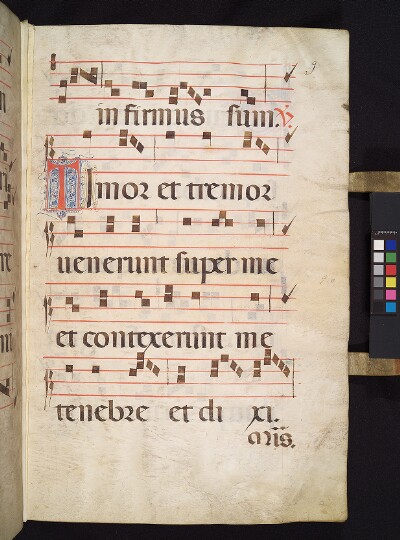 infirmus sum. ℣.
Timor et tremor
uenerunt super me
et contexerunt me
tenebre et di xi.